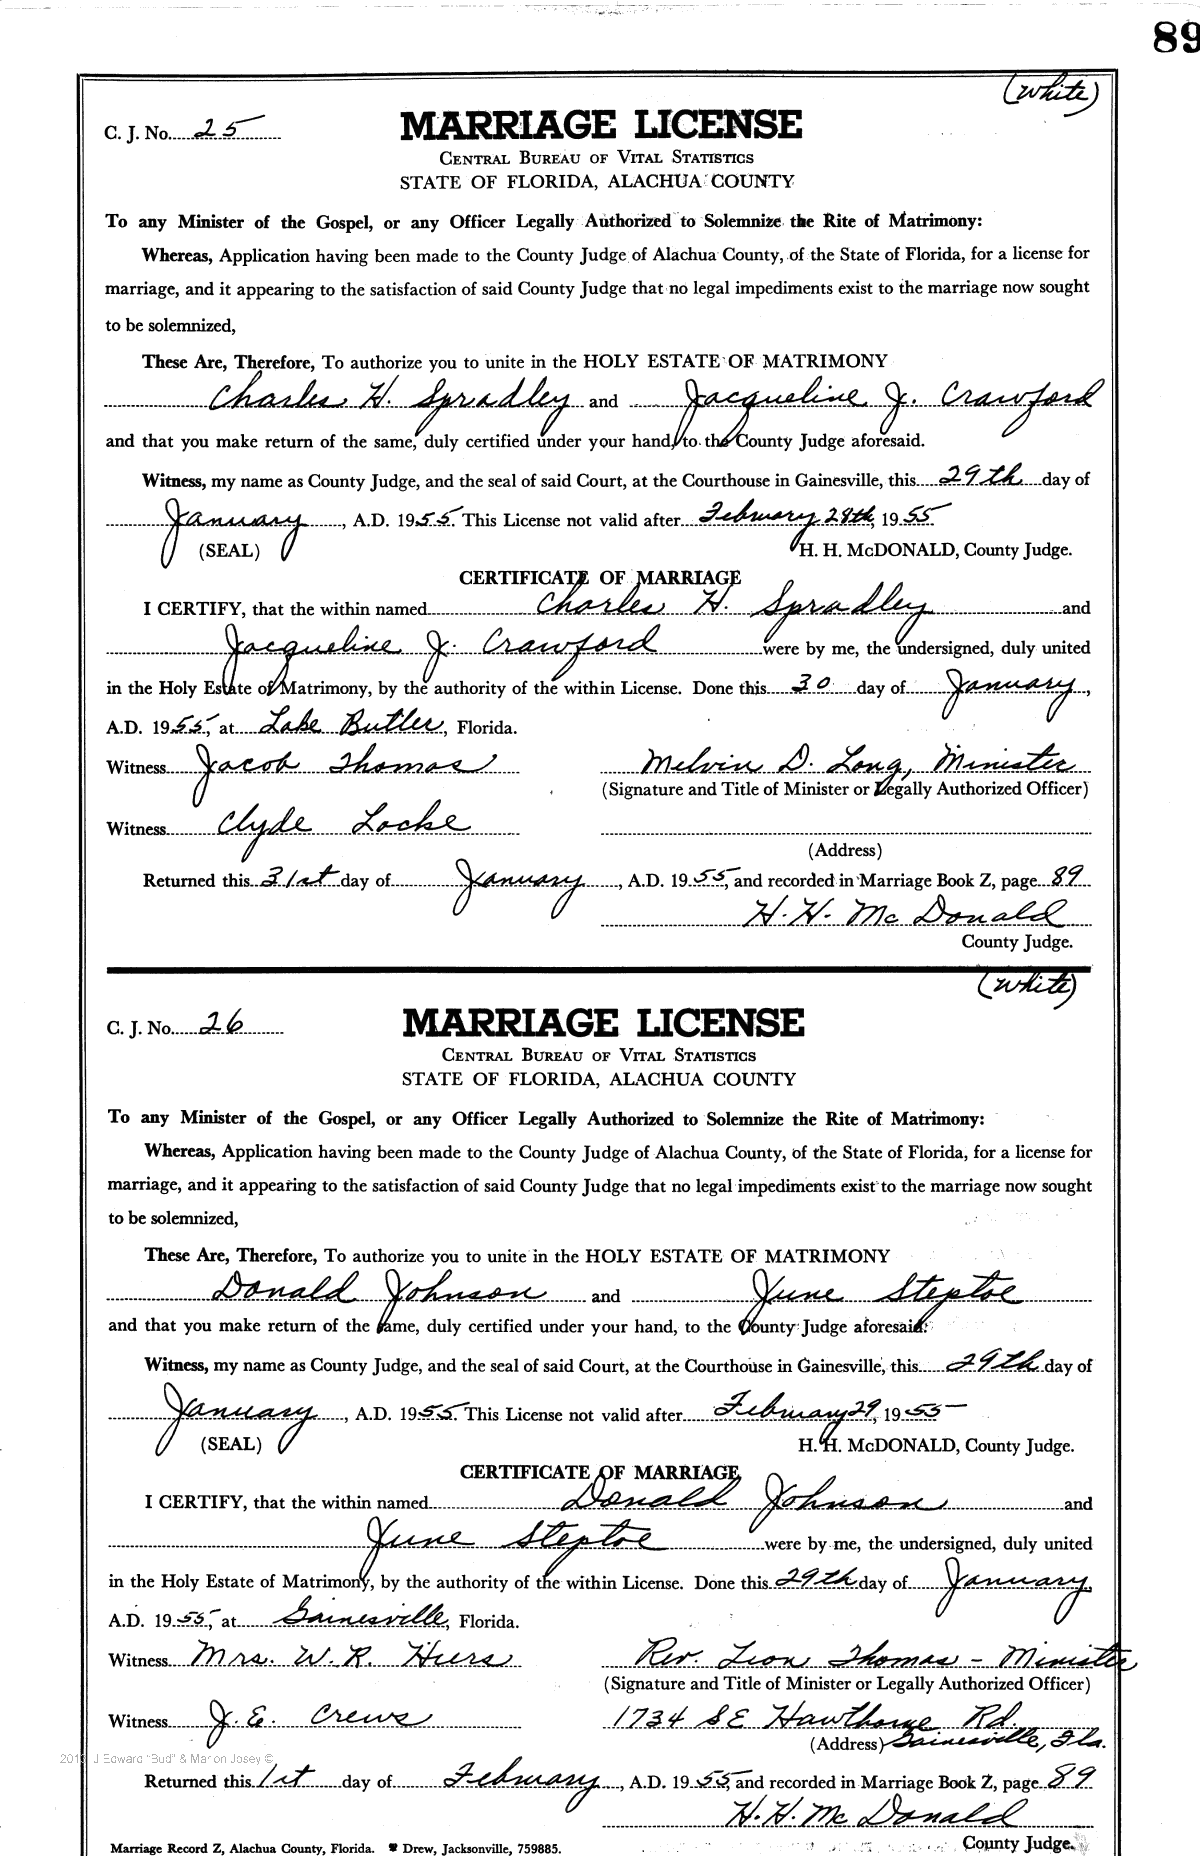 89
(White)
C. J. No. 25
MARRIAGE LICENSE
CENTRAL BUREAU OF VITAL STATISTICS
STATE OF FLORIDA, ALACHUA COUNTY
To any Minister of the Gospel, or any Officer Legally Authorized to Solemnize the Rite of Matrimony:
Whereas, Application having been made to the County Judge of Alachua County, of the State of Florida, for a license for
marriage, and it appearing to the satisfaction of said County Judge that no legal impediments exist to the marriage now sought
to be solemnized,
These Are, Therefore, To authorize you to unite in the HOLY ESTATE OF MATRIMONY
Charles H. Spradley and Jacqueline J. Crawford
and that you make return of the same, duly certified under your hand, to the County Judge aforesaid.
Witness, my name as County Judge, and the seal of said Court, at the Courthouse in Gainesville, this 29th day of
January, A.D. 1955. This License not valid after February 28th, 1955
(SEAL) H. H. McDONALD, County Judge.
CERTIFICATE OF MARRIAGE
I CERTIFY, that the within named Charles H. Spradley and
Jacqueline J. Crawford were by me, the undersigned, duly united
in the Holy Estate of Matrimony, by the authority of the within License. Done this 30 day of January,
A.D. 1955, at Lake Butler, Florida.
Witness Jacob Thomas Melvin D. Long, Minister
(Signature and Title of Minister or Legally Authorized Officer)
Witness Clyde Locke
(Address)
Returned this 31st day of January, A.D. 1955, and recorded in Marriage Book Z, page 89
H. H. McDonald
County Judge.
(White)
C. J. No. 26
MARRIAGE LICENSE
CENTRAL BUREAU OF VITAL STATISTICS
STATE OF FLORIDA, ALACHUA COUNTY
To any Minister of the Gospel, or any Officer Legally Authorized to Solemnize the Rite of Matrimony:
Whereas, Application having been made to the County Judge of Alachua County, of the State of Florida, for a license for
marriage, and it appearing to the satisfaction of said County Judge that no legal impediments exist to the marriage now sought
to be solemnized,
These Are, Therefore, To authorize you to unite in the HOLY ESTATE OF MATRIMONY
Donald Johnson and June Steptoe
and that you make return of the same, duly certified under your hand, to the County Judge aforesaid.
Witness, my name as County Judge, and the seal of said Court, at the Courthouse in Gainesville, this 29th day of
January, A.D. 1955. This License not valid after February 29, 1955
(SEAL) H. H. McDONALD, County Judge.
CERTIFICATE OF MARRIAGE
I CERTIFY, that the within named Donald Johnson and
June Steptoe were by me, the undersigned, duly united
in the Holy Estate of Matrimony, by the authority of the within License. Done this 29th day of January,
A.D. 1955, at Gainesville, Florida.
Witness Mrs. W. R. Hiers Rev. Leon Thomas - Minister
(Signature and Title of Minister or Legally Authorized Officer)
Witness J. E. Crews 1734 SE Hawthorne Rd.
(Address) Gainesville, Fla.
J Edward "Bud" & Marion Josey ©
Returned this 1st day of February, A.D. 1955, and recorded in Marriage Book Z, page 89
H. H. McDonald
County Judge.
Marriage Record Z, Alachua County, Florida. Drew, Jacksonville, 759885.